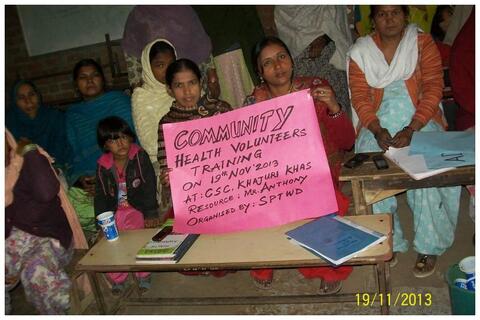 COMMUNITY
HEALTH VOLUNTEERS
TRAINING
ON 19TH NOV' 2013
AT: CSC, KHAJURI KHAS
RESOURCE: MR. ANTHONY
ORGANISED BY: SPTWD
19/11/2013